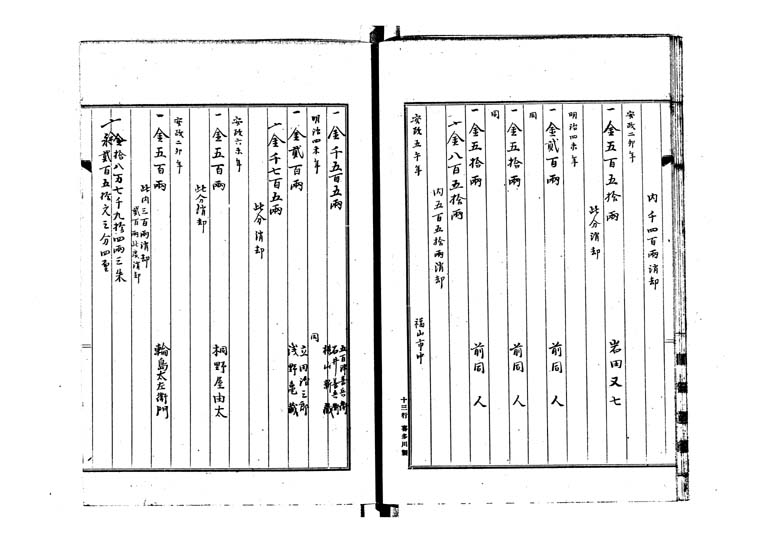 内千四百両消却
安政二卯年
一金五百五拾両　岩田又七
此分消却
明治四未年
一金貳百両　前同人
同
一金五拾両　前同人
同
一金五拾両　前同人
一金八百五拾両
内五百五拾両消却
安政五午年　福山市中
十三行 喜多川製
一金千五百五両
五百
石井
横山
明治四未年　同
一金貳百両
立田
浅野亀蔵
一金千七百五両
此分消却
安政六未年
一金五百両　桐野屋由太
此分消却
安政二卯年
一金五百両　輪島太左衛門
此内三百両消却
貳百両此度消却
一金拾八万七千九拾四両三朱
永貳百五拾文三分四